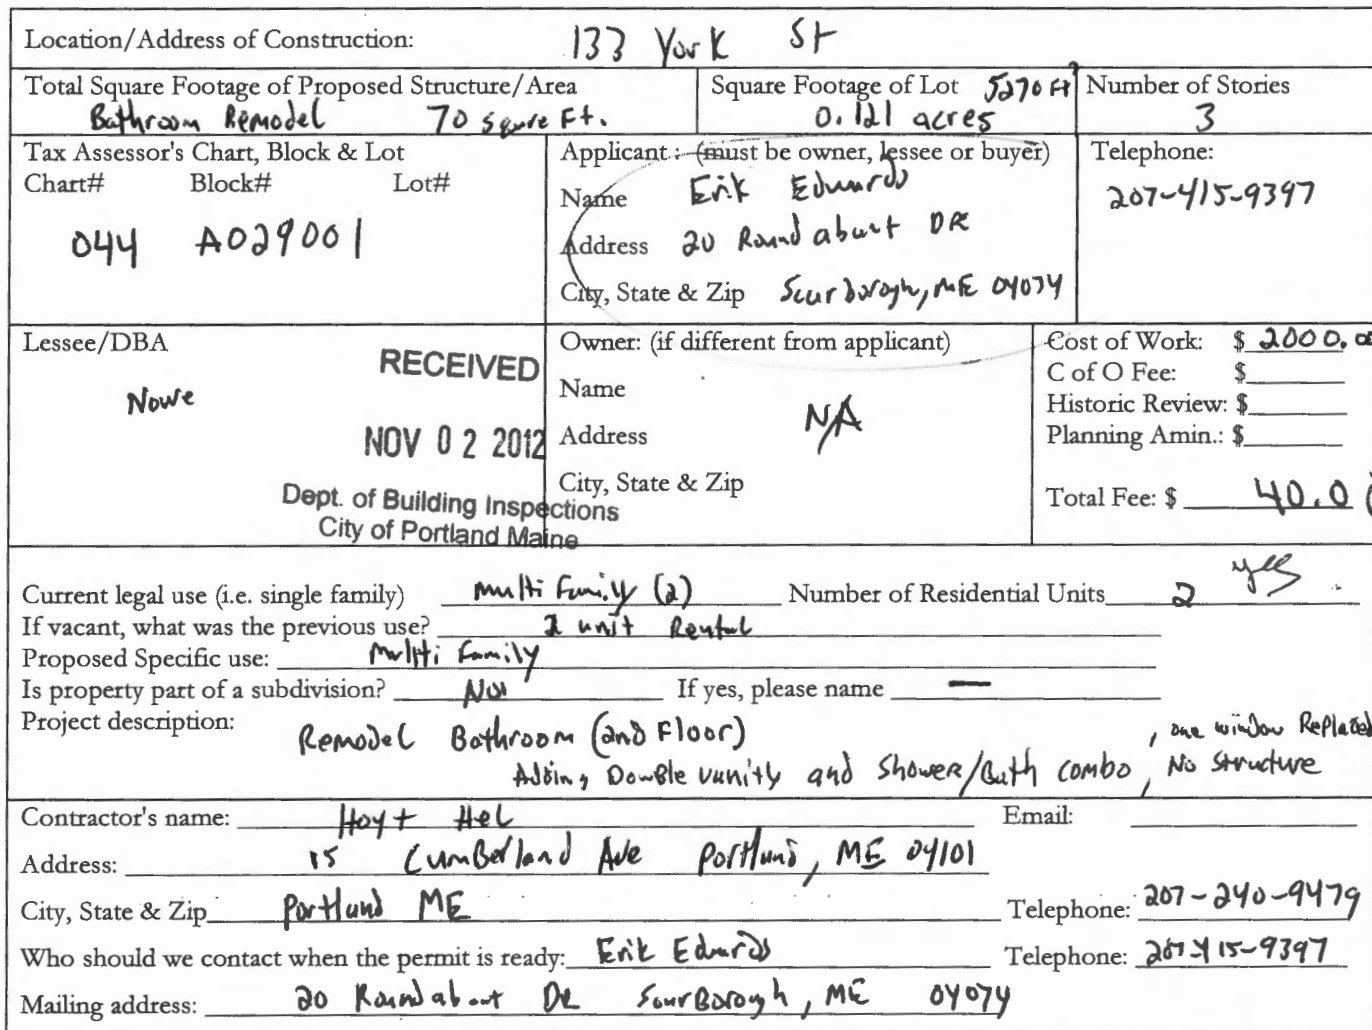 Location/Address of Construction: 133 York St
Total Square Footage of Proposed Structure/Area
Bathroom Remodel 70 squre Ft.
Square Footage of Lot 5270 Ft²
0.121 acres
Number of Stories
3
Tax Assessor's Chart, Block & Lot
Chart# Block# Lot#
044 A029001
Applicant: (must be owner, lessee or buyer)
Name Erik Edwards
Address 20 Roundabout DR
City, State & Zip Scarborogh, ME 04074
Telephone:
207-415-9397
Lessee/DBA
None
RECEIVED
NOV 02 2012
Dept. of Building Inspections
City of Portland Maine
Owner: (if different from applicant)
Name
N/A
Address
City, State & Zip
Cost of Work: $ 2000.00
C of O Fee: $
Historic Review: $
Planning Amin.: $
Total Fee: $ 40.0
Current legal use (i.e. single family) Multi Family (2) Number of Residential Units 2 yes
If vacant, what was the previous use? 2 unit Rental
Proposed Specific use: Multi Family
Is property part of a subdivision? No If yes, please name —
Project description:
Remodel Bathroom (2nd Floor)
Adding Double vanity and Shower/Bath combo, one window Replaced, No Structure
Contractor's name: Hoyt Hel Email:
Address: 15 CumBerland Ave Portland, ME 04101
City, State & Zip Portland ME Telephone: 207-240-9479
Who should we contact when the permit is ready: Erik Edwards Telephone: 207-415-9397
Mailing address: 20 Roundabout DR ScarBorough, ME 04074